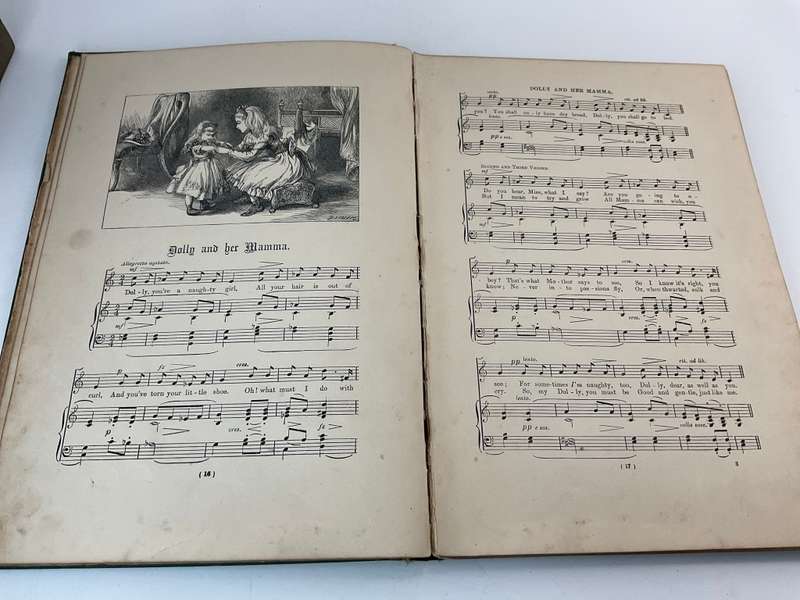 Dolly and her Mamma.
Allegretto agitato.
mf
Dol-ly, you're a naugh-ty girl, All your hair is out of
mf
fz cres.
curl, And you've torn your lit-tle shoe. Oh! what must I do with
p cres. fz
( 16 )
DOLLY AND HER MAMMA.
rit. ad lib.
you? You shall on-ly have dry bread, Dol-ly, you shall go to bed.
lento.
pp e sos. colla voce.
SECOND AND THIRD VERSES.
mf
Do you hear, Miss, what I say? Are you go-ing to o-
But I mean to try and grow All Mam-ma can wish, you
mf
p cres.
bey? That's what Mo-ther says to me, So I know it's right, you
know; Ne-ver in-to pas-sions fly, Or, when thwarted, sulk and
p cres. fz
pp lento. rit. ad lib.
see; For some-times I'm naughty, too, Dol-ly, dear, as well as you.
cry. So, my Dol-ly, you must be Good and gen-tle, just like me.
lente.
pp e sos. colla voce.
( 17 )